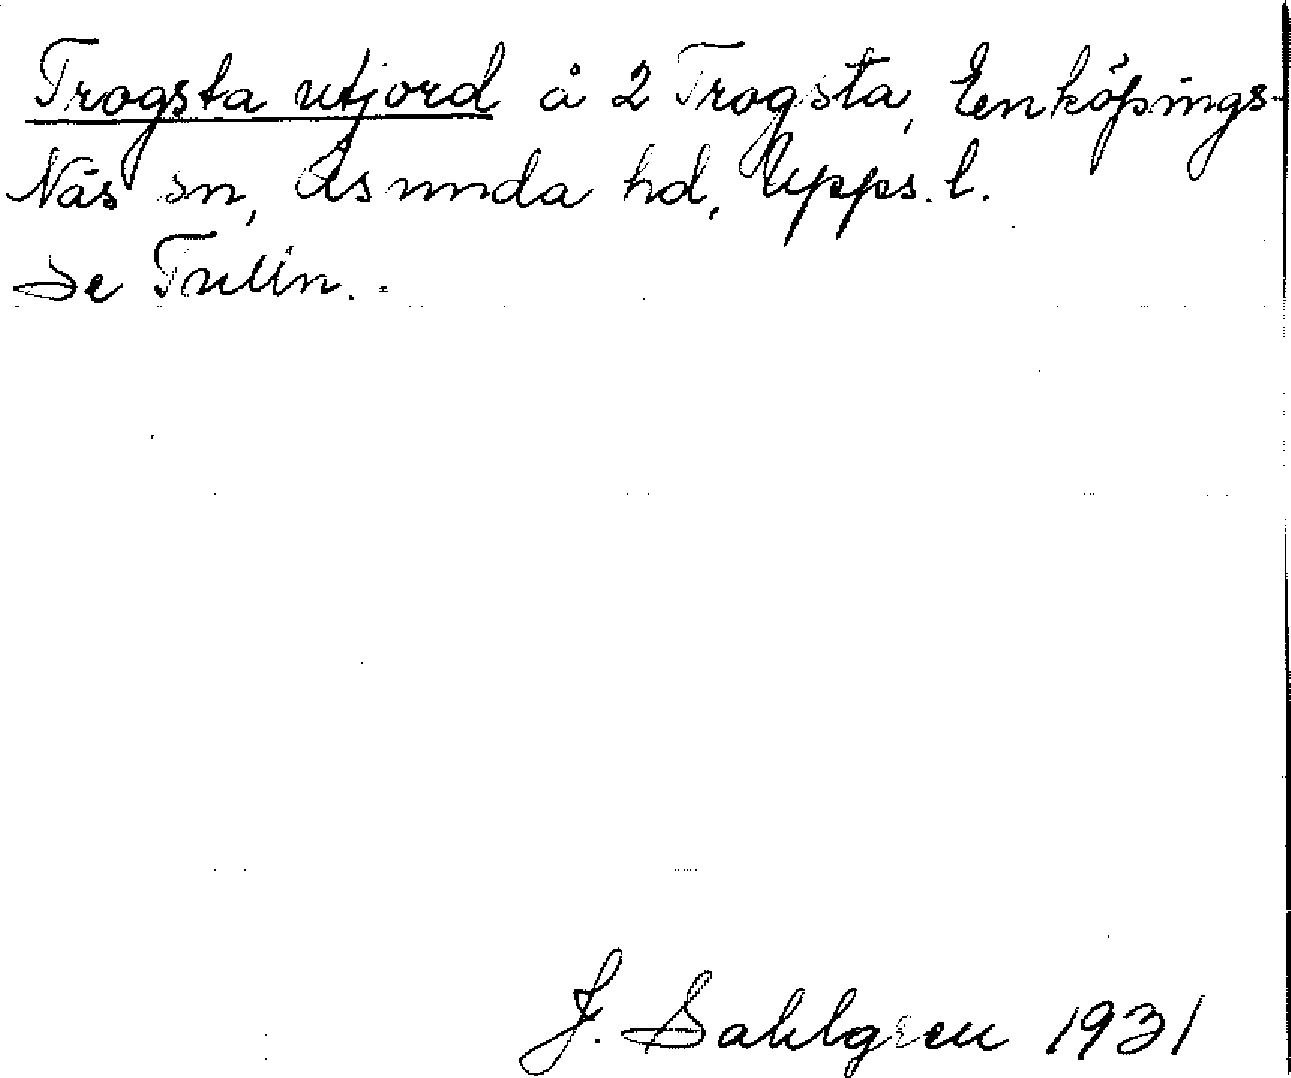 Trogsta utjord å 2 Trogsta, Enköpings-
Näs sn, Åsunda hd, Upps. l.
Se Tulln.
J. Sahlgren 1931